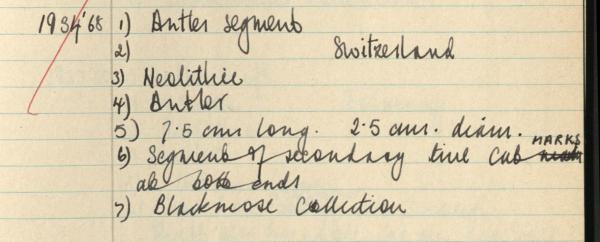 1934'68 1) Antler segment
2) Switzerland
3) Neolithic
4) Antler
5) 7.5 cms long. 2.5 cms. diam.
6) Segment of secondary tine Cut MARKS
at both ends
7) Blackmore Collection